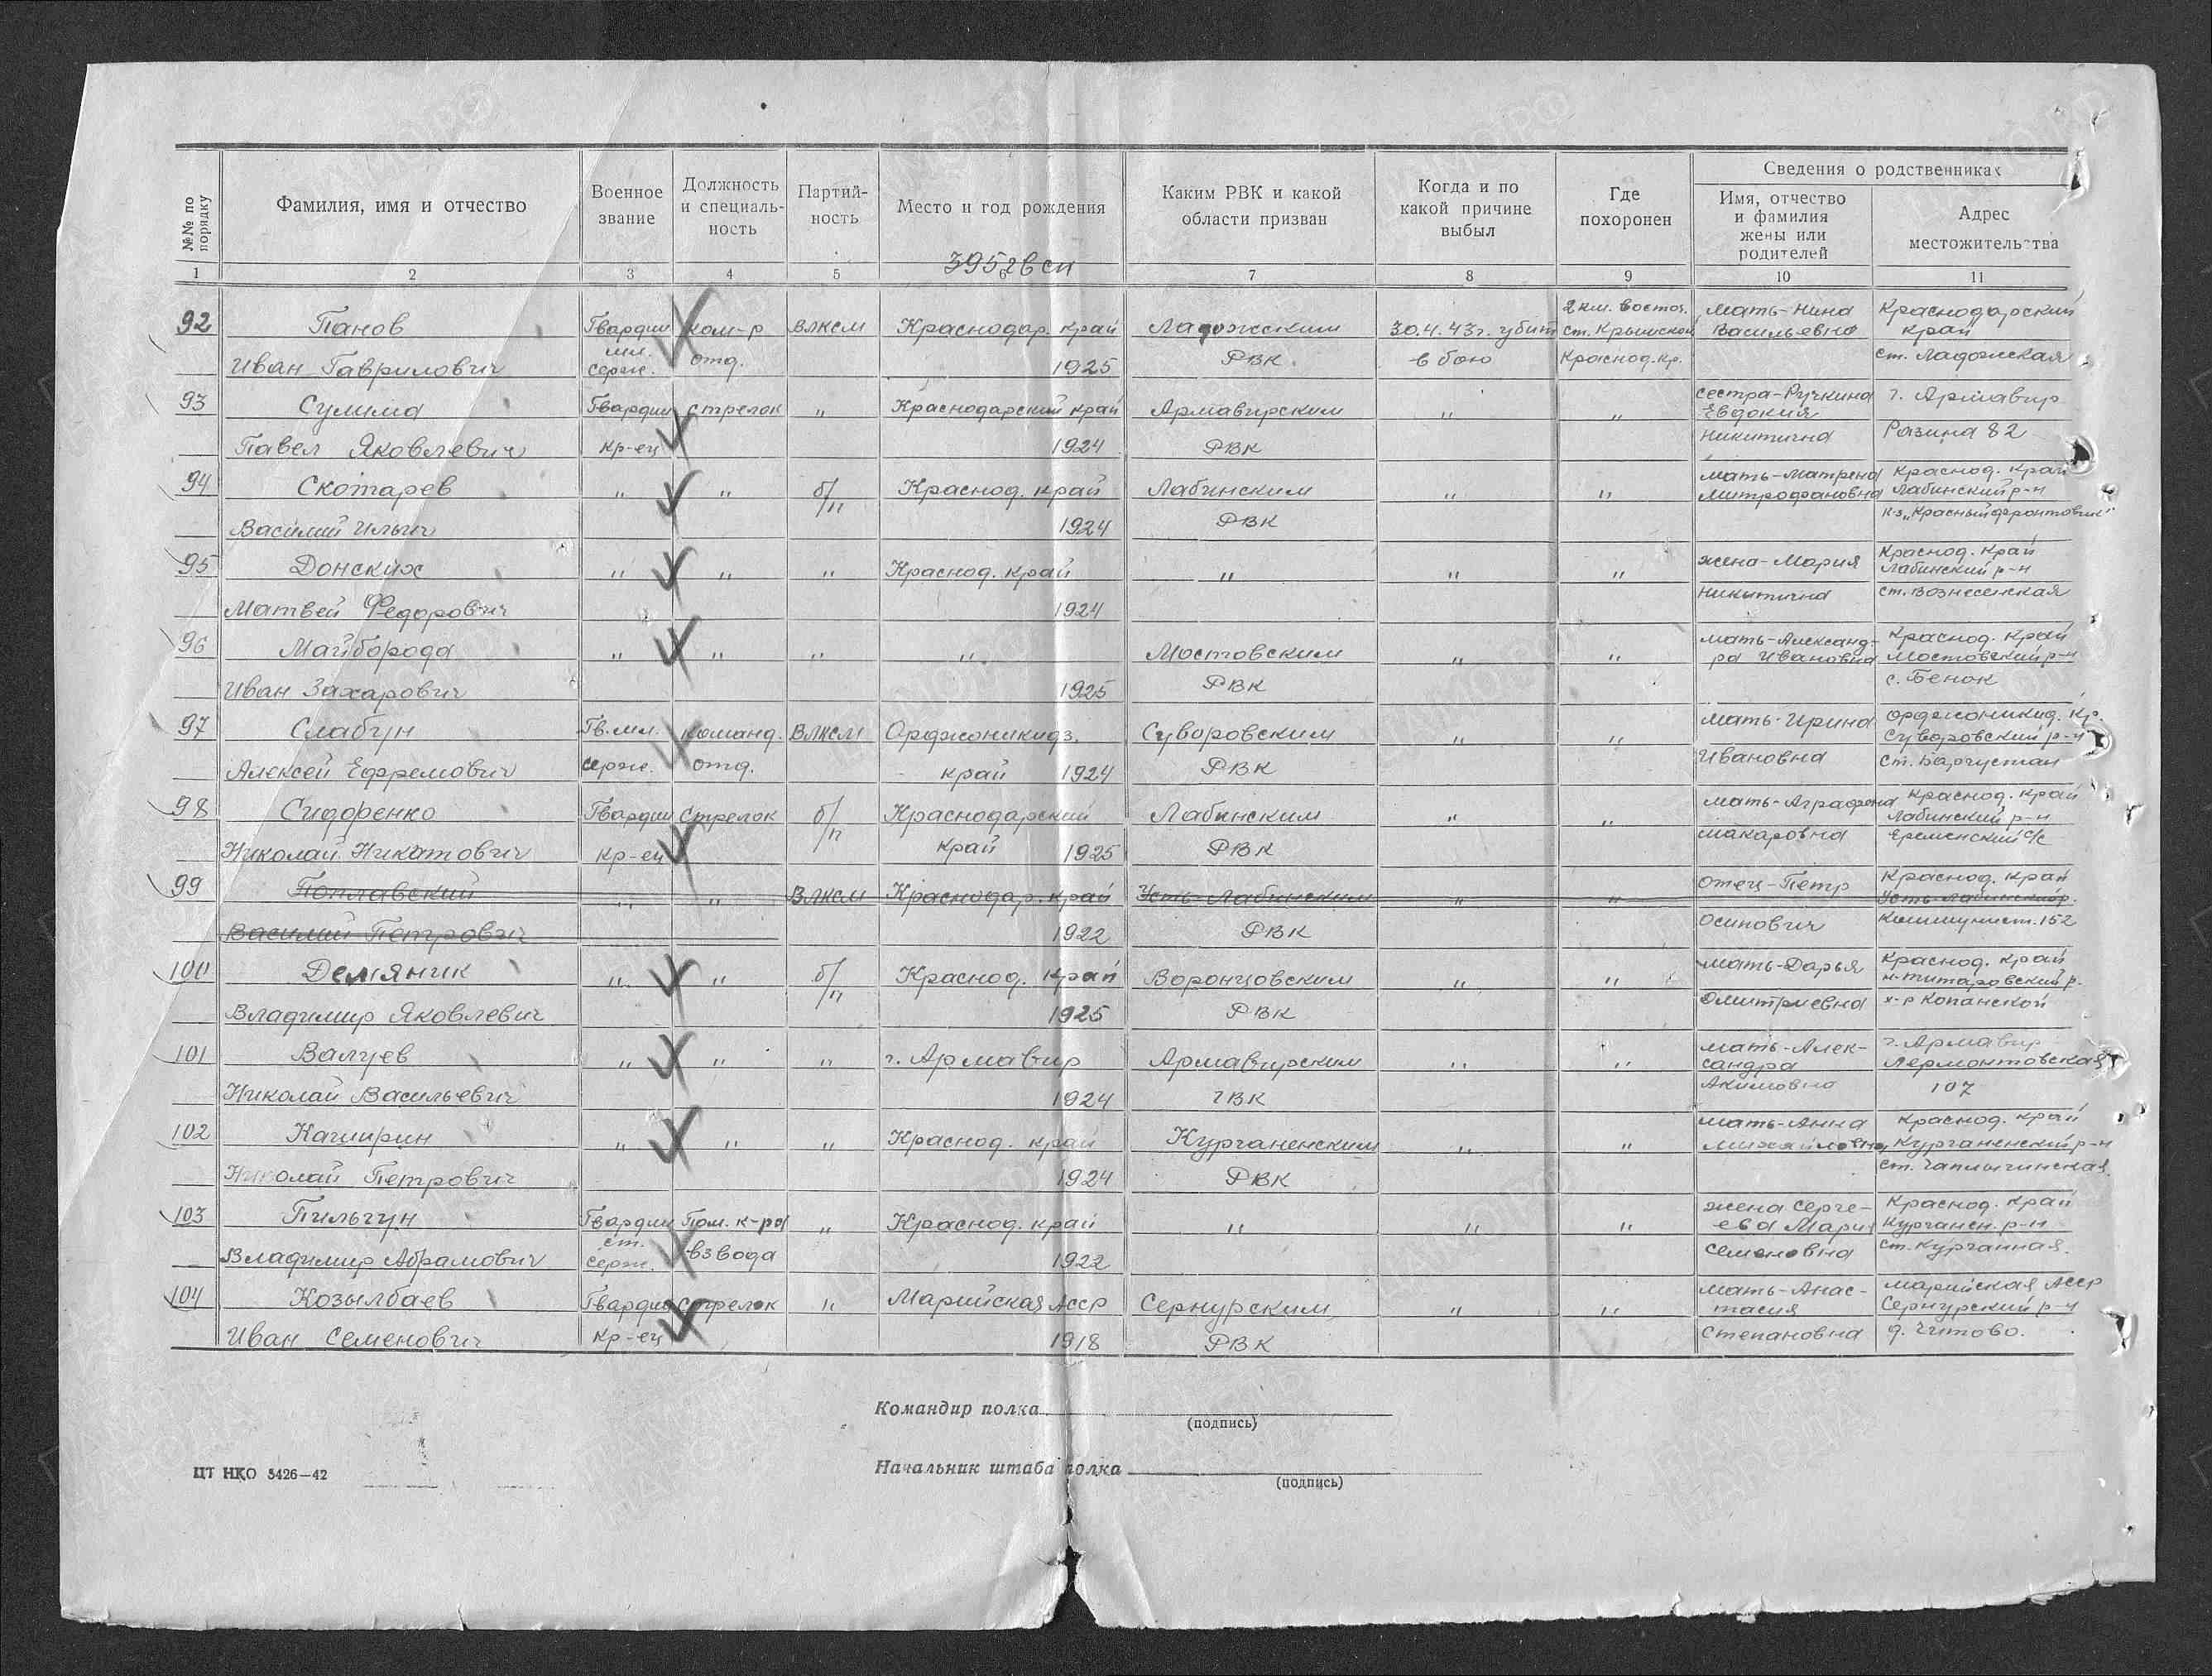 №№ по порядку
Фамилия, имя и отчество
Военное звание
Должность и специальность
Партийность
Место и год рождения
Каким РВК и какой области призван
Когда и по какой причине выбыл
Где похоронен
Сведения о родственниках
Имя, отчество и фамилия жены или родителей
Адрес местожительства
395 гв сп
1 2 3 4 5 6 7 8 9 10 11
92 Панов Гвардии ком-р ВЛКСМ Краснодар. край Ладожским 30.4.43г. убит 2 км. восточ. ст. Крымской мать-Нина Васильевна Краснодарский край
Иван Гаврилович мл. серж. отд. 1925 РВК в бою Краснод. кр. ст. Ладожская
93 Сулима Гвардии стрелок " Краснодарский край Армавирским " " сестра-Ручкина Евдокия г. Армавир
Павел Яковлевич кр-ец 1924 РВК Никитична Разина 82
94 Скотарев " " б/п Краснод. край Лабинским " " мать-Матрена Митрофановна Краснод. край Лабинский р-н
Василий Ильич 1924 РВК к-з „Красный фронтовик"
95 Донских " " " Краснод. край " " " жена-Мария Краснод. край Лабинский р-н
Матвей Федорович 1924 Никитична ст. Вознесенская
96 Майборода " " " " Мостовским " " мать-Александра Ивановна Краснод. край Мостовский р-н
Иван Захарович 1925 РВК с. Бенок
97 Слабун Гв. мл. команд. ВЛКСМ Орджоникидз. Суворовским " " мать-Ирина Орджоникид. кр. Суворовский р-н
Алексей Ефремович серж. отд. край 1924 РВК Ивановна ст. Баргустан
98 Сидоренко Гвардии Стрелок б/п Краснодарский Лабинским " " мать-Аграфена Краснод. край Лабинский р-н
Николай Никатович кр-ец край 1925 РВК Макаровна Еременский с/с
99 Поплавский " " ВЛКСМ Краснодар. край Усть-Лабинским " " отец-Петр Краснод. край Усть-Лабинский р.
Василий Петрович 1922 РВК Осипович Коммунист. 152
100 Демяник " " б/п Краснод. край Воронцовским " " мать-Дарья Краснод. край н-титаровский р.
Владимир Яковлевич 1925 РВК Дмитриевна х-р Копанской
101 Валуев " " " г. Армавир Армавирским " " мать-Александра г. Армавир Лермонтовская
Николай Васильевич 1924 ГВК Акимовна 107
102 Каширин " " " Краснод. край Курганенским " " мать-Анна Михайловна Краснод. край Курганенский р-н
Николай Петрович 1924 РВК ст. Чамлыгинская
103 Пильгун Гвардии Пом. к-ра " Краснод. край " " " жена Сергеева Мария Краснод. край Курганен. р-н
Владимир Абрамович ст. серж. взвода 1922 Семеновна ст. Курганная.
104 Козылбаев Гвардии стрелок " Марийская АССР Сернурским " " мать-Анастасия Марийская АССР Сернурский р-н
Иван Семенович кр-ец 1918 РВК Степановна д. Читово.
Командир полка
(подпись)
Начальник штаба полка
(подпись)
ЦТ НКО 5426—42